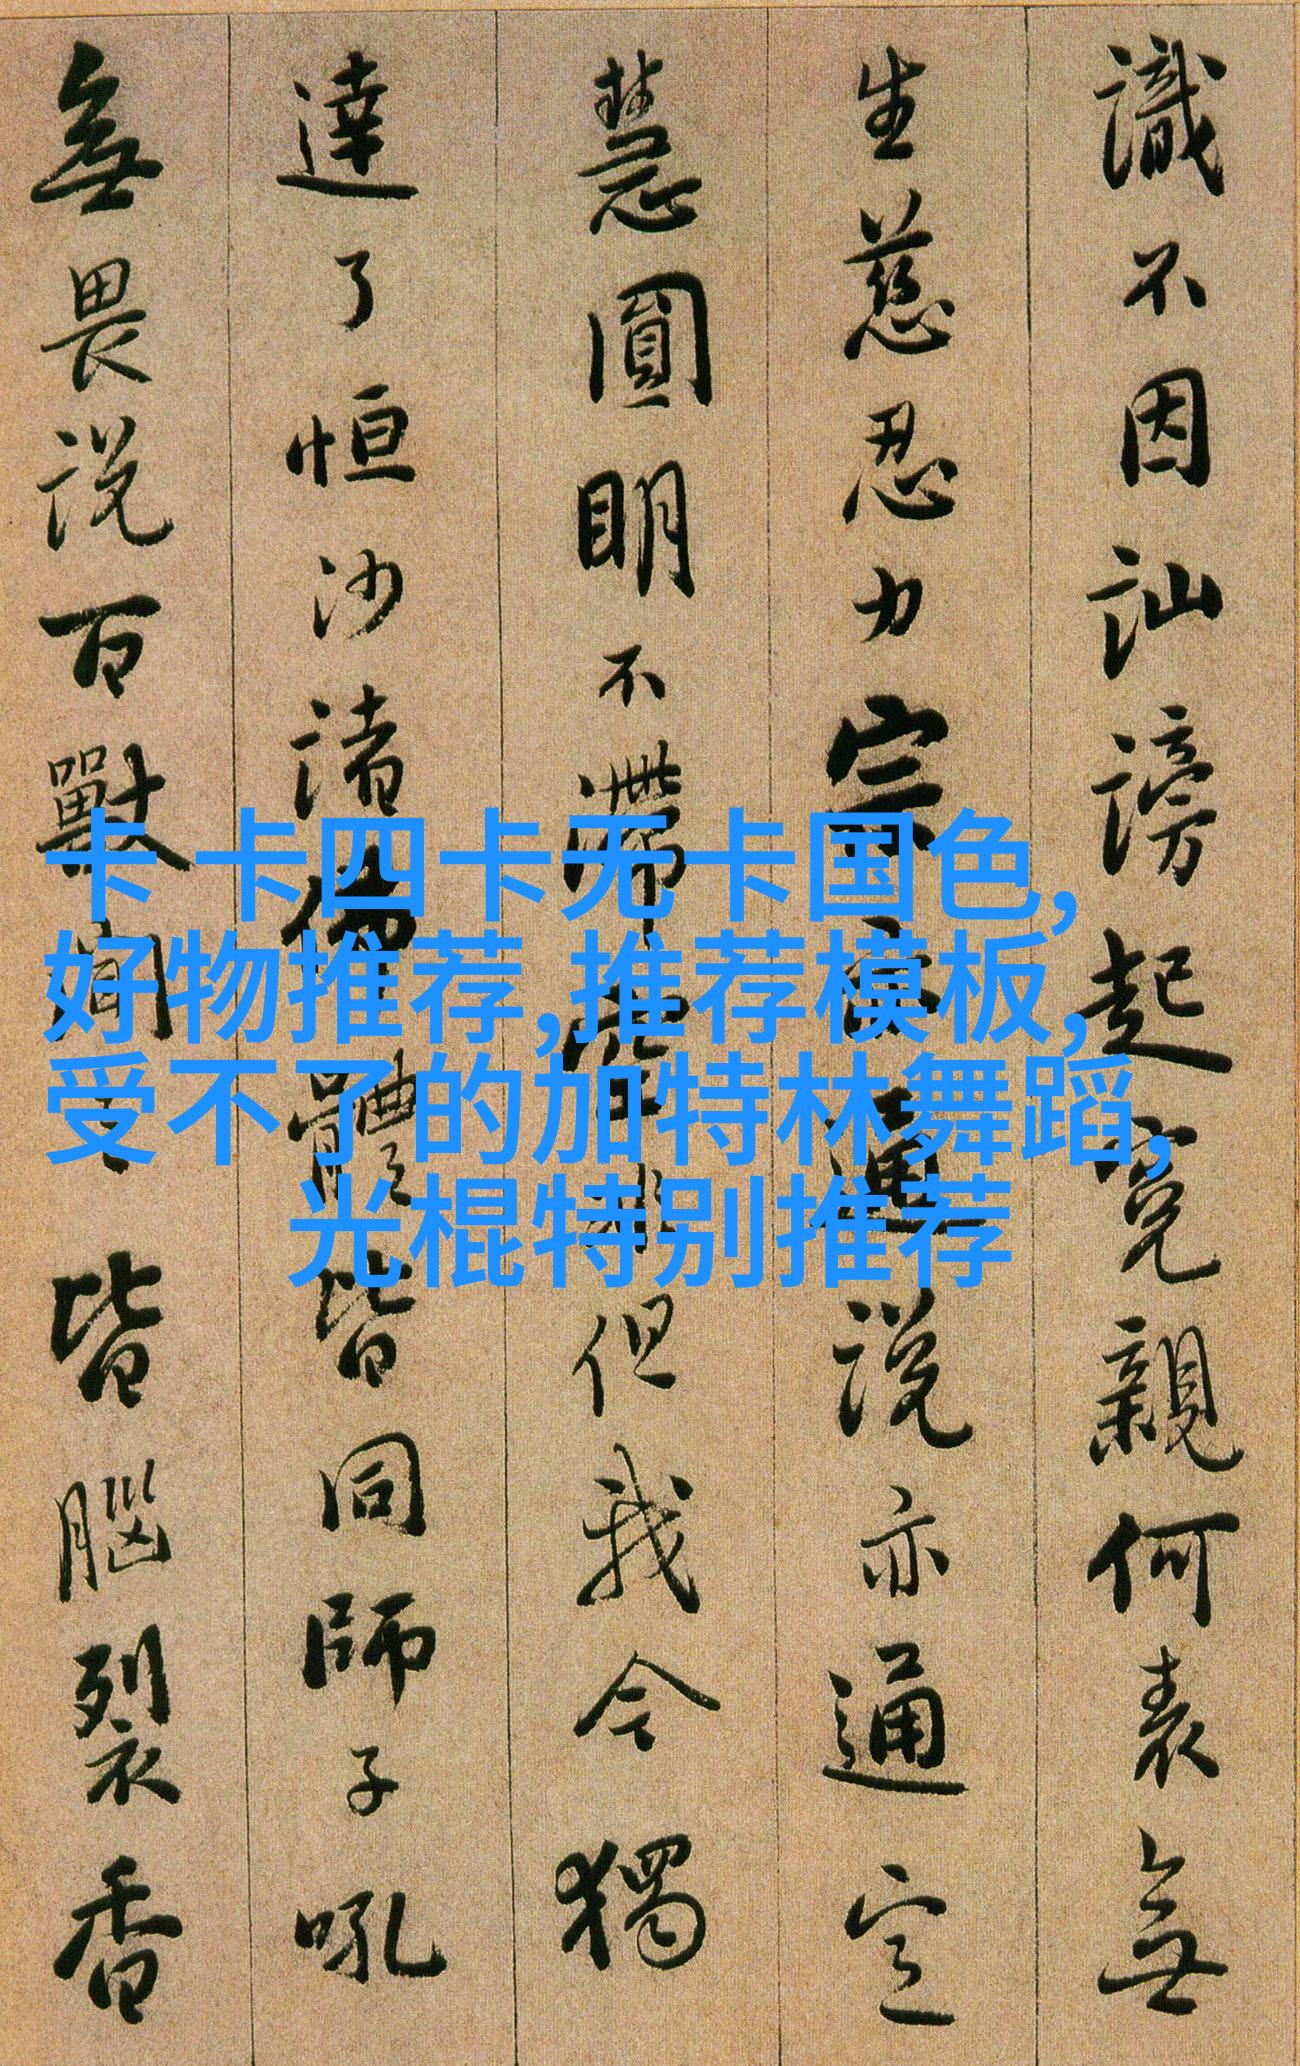 識不因訕謗起寃親何表無
生慈忍力宗亦通説亦通定
慧圓明不滯空非但我今獨
達了恒沙諸佛體皆同師子吼
無畏説百獸聞皆腦裂香
卡 卡四卡无卡国色,
好物推荐,推荐模板,
受不了的加特林舞蹈,
光棍特别推荐